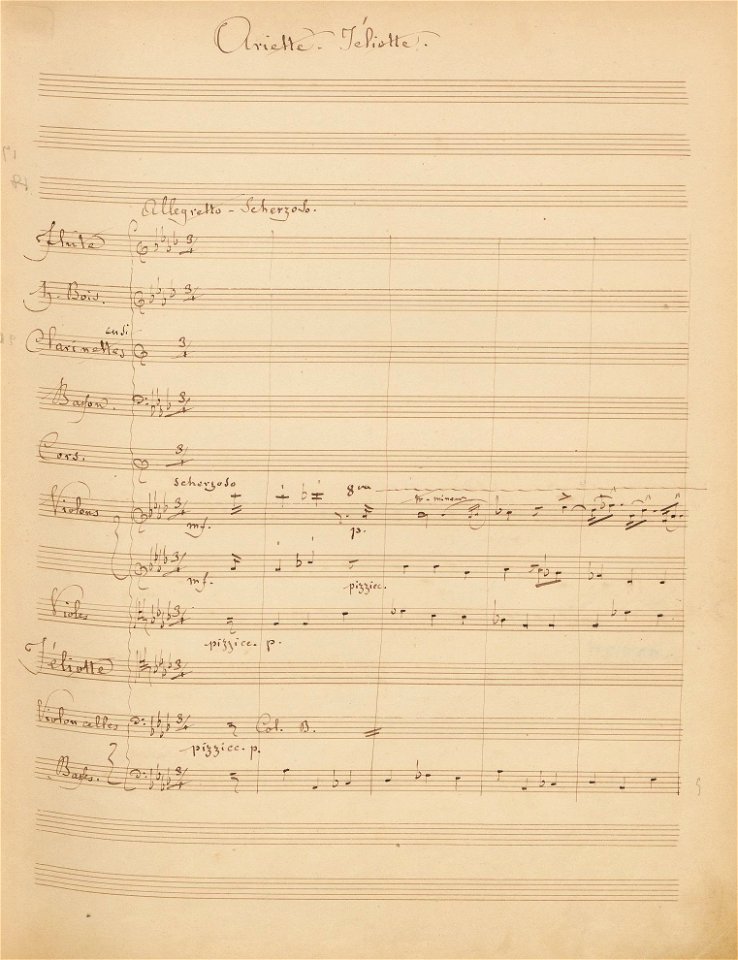 Ariette. Jéliotte.
Allegretto - Scherzoso.
Flûte
h. Bois.
en si
Clarinettes
Basson.
Cors.
scherzoso
8va
Violons
mf.
p.
mf.
pizzicc.
Violes
pizzicc. p.
Jéliotte
Violoncelles
Col. B.
pizzicc. p.
Basses.